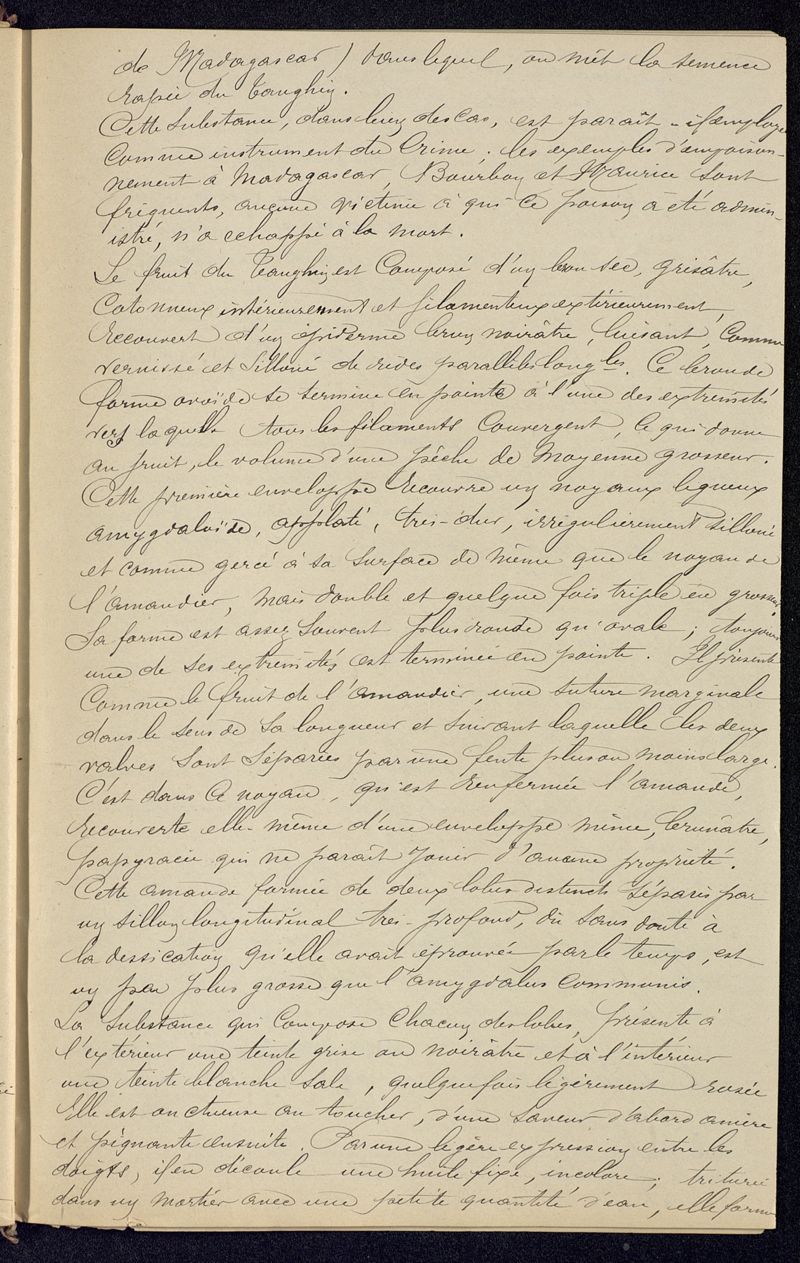 de Madagascar) dans lequel, on mêt la semence
rapée du Tanghin.
Cette substance, dans bien des cas, est paraît-il employé
comme instrument du Crime; les exemples d'empoison-
nement à Madagascar, Bourbon et Maurice sont
fréquents, aucune victime à qui ce poison a été admin-
istré, n'a echappé à la mort.
Le fruit du Tanghin est Composé d'un brou sec, grisâtre,
Cotonneux intérieurement et filamenteux extérieurement,
recouvert d'un épiderme brun noirâtre, luisant, Comme
vernissé et silloné de rides parallèles longles. Ce brou de
forme ovoïde se termine en pointe à l'une des extremités
vers laquelle tous les filaments Convergent, ce qui donne
au fruit, le volume d'une pêche de Moyenne grosseur.
Cette première enveloppe recouvre un noyaux ligneux
amygdaloïde, applati, très-dur, irrégulièrement silloné
et comme gercé à sa surface de même que le noyau de
l'amandier, mais double et quelque fois triple en grosseur
Sa forme est assez souvent plus ronde qu'ovale; toujours
une de ses extremités est terminée en pointe. Il présente
Comme le fruit de l'amandier, une suture marginale
dans le sens de sa longueur et suivant laquelle les deux
valves sont séparées par une fente plus ou moins large.
C'est dans ce noyau, qu'est renfermée l'amande,
recouverte elle-même d'une enveloppe mince, brunâtre,
papyracée qui ne parait jouir d'aucune propriété.
Cette amande formée de deux lobes distincts séparés par
un sillon longitudinal très-profond, dû sans doute à
la dessication qu'elle avait éprouvée par le temps, est
un peu plus grosse que l'amygdalus Communis.
La substance qui Compose Chacun des lobes, présente à
l'extérieur une teinte grise ou noirâtre et à l'intérieur
une teinte blanche sale, quelquefois légèrement rosée
Elle est onctueuse au toucher, d'une saveur d'abord amère
et piquante ensuite. Par une legère expression entre les
doigts, il en découle une huile fixe, incolore; triturée
dans un mortier avec une petite quantité d'eau, elle forme